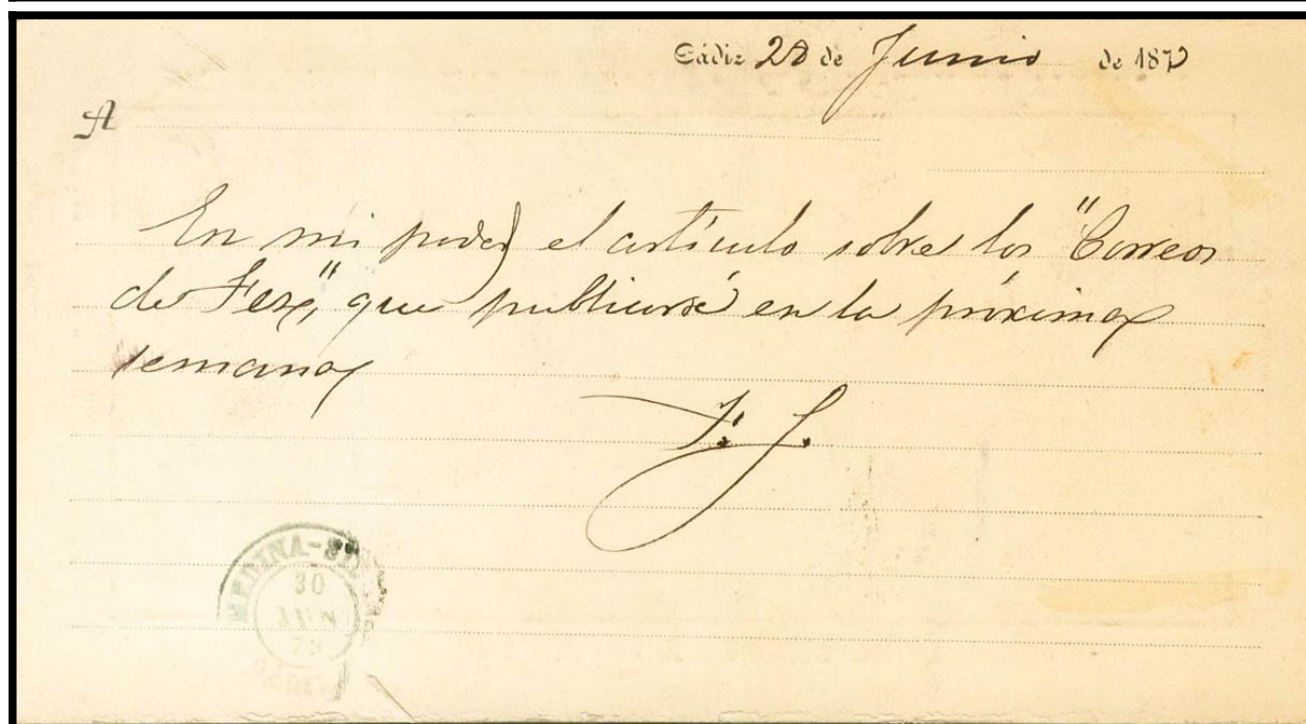 Cádiz 28 de Junio de
A
En mi poder el artículo sobre los "Correos
de Fez", que publicaré en la próxima
semana
F. J.
30
JUN